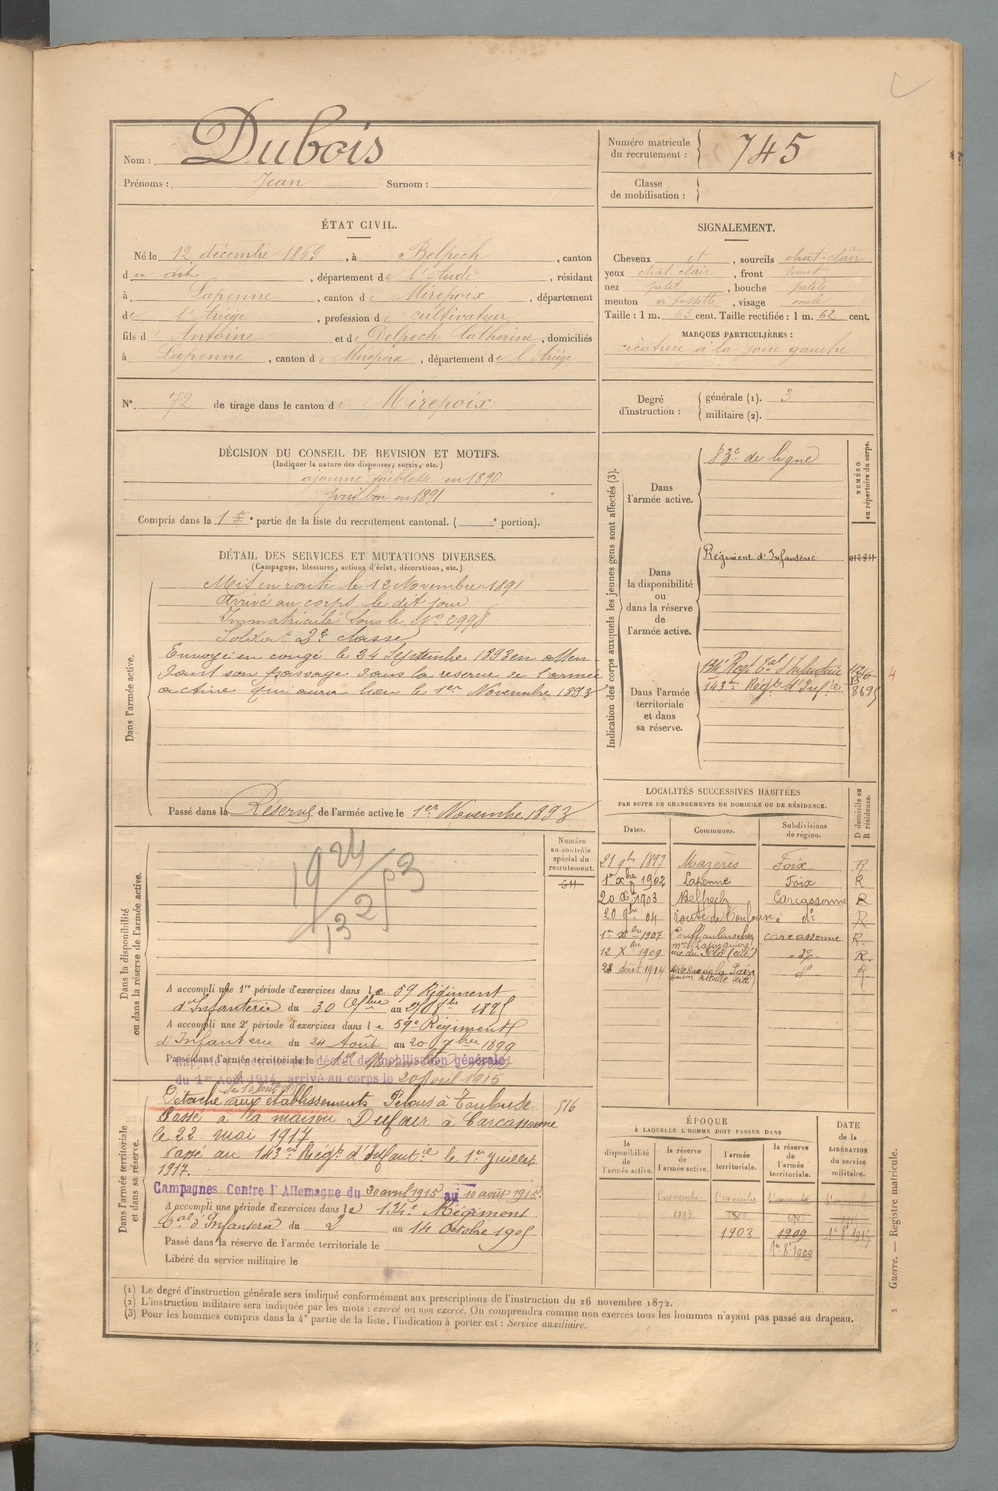 Nom : Dubois
Prénoms : Jean Surnom :
Numéro matricule
du recrutement : 745
Classe
de mobilisation :
ÉTAT CIVIL.
Né le 12 décembre 1869, à Belpech, canton
d en dit, département de l'Aude, résidant
à Lapenne, canton de Mirepoix, département
de l'Ariège, profession de cultivateur
fils d' Antoine et de Delpech Catherine, domiciliés
à Lapenne, canton de Mirepoix, département de l'Ariège
N° 72 de tirage dans le canton de Mirepoix
SIGNALEMENT.
Cheveux et, sourcils chat. clair
yeux chat. clair, front haut
nez petit, bouche petite
menton à fossette, visage ovale
Taille : 1 m. 63 cent. Taille rectifiée : 1 m. 62 cent.
MARQUES PARTICULIÈRES :
cicatrice à la joue gauche
Degré
d'instruction :
générale (1). 3
militaire (2).
DÉCISION DU CONSEIL DE REVISION ET MOTIFS.
(Indiquer la nature des dispenses, sursis, etc.)
ajourné faiblesse en 1890
bon en 1891
Compris dans la 1re partie de la liste du recrutement cantonal. ( e portion).
DÉTAIL DES SERVICES ET MUTATIONS DIVERSES.
(Campagnes, blessures, actions d'éclat, décorations, etc.)
Dans l'armée active.
Mis en route le 12 Novembre 1891
Arrivé au corps le dit jour
Immatriculé sous le N° 2998
Soldat 2e classe
Envoyé en congé le 24 Septembre 1893 en atten-
dant son passage dans la réserve de l'armée
active qui aura lieu le 1er Novembre 1893
Passé dans la Réserve de l'armée active le 1er Novembre 1893
Indication des corps auxquels les jeunes gens sont affectés (3).
NUMÉRO
au répertoire du corps.
Dans
l'armée active.
83e de ligne
Dans
la disponibilité
ou
dans la réserve
de
l'armée active.
Régiment d'Infanterie
Dans l'armée
territoriale
et dans
sa réserve.
134e Régt tal d'Infanterie
143me Régt d'Infie
4
LOCALITÉS SUCCESSIVES HABITÉES
PAR SUITE DE CHANGEMENTS DE DOMICILE OU DE RÉSIDENCE.
D domicile ou
R résidence.
Dates. Communes. Subdivisions
de région.
21 9bre 1897 Mazères Foix R
1er Xbre 1902 Lapenne Foix R
20 Xbre 1903 Belpech Carcassonne R
20 9bre 04 route de Toulouse do R
1er Xbre 1907 Carcassonne R.
12 Xbre 1909 (cité) do R.
28 août 1914 rue de la Paix do R
Dans la disponibilité
ou dans la réserve de l'armée active.
Numéro
au contrôle
spécial du
recrutement.
1924
A accompli une 1re période d'exercices dans le 59 Régiment
d'Infanterie du 30 au 1895
A accompli une 2e période d'exercices dans le 59e Régiment
d'Infanterie du 24 Août au 20 7bre 1899
Passé dans l'armée territoriale le 1er Novembre
Rappelé décret de mobilisation générale
du 1er Août 1914, arrivé au corps le 20 Avril 1915
Dans l'armée territoriale
et dans sa réserve.
516
Détaché aux établissements à Toulouse.
Passé à la maison Dufour à Carcassonne
le 22 mai 1917
Passé au 143me Régt d'Infantie le 1er Juillet
1917.
Campagnes Contre l'Allemagne du 30 avril 1915 au 10 août 1915
A accompli une période d'exercices dans le 134e Régiment
tal d'Infanterie du 2 au 14 Octobre 1905
Passé dans la réserve de l'armée territoriale le
Libéré du service militaire le
ÉPOQUE
À LAQUELLE L'HOMME DOIT PASSER DANS
la
disponibilité
de
l'armée active.
la réserve
de
l'armée active.
l'armée
territoriale.
la réserve
de
l'armée
territoriale.
DATE
de la
LIBÉRATION
du service
militaire.
1er novembre 1er novembre 1er novembre 1er novembre
1893
1903 1909
1er 8e 1909
Guerre. — Registre matricule.
(1) Le degré d'instruction générale sera indiqué conformément aux prescriptions de l'instruction du 26 novembre 1872.
(2) L'instruction militaire sera indiquée par les mots : exercé ou non exercé. On comprendra comme non exercés tous les hommes n'ayant pas passé au drapeau.
(3) Pour les hommes compris dans la 4e partie de la liste, l'indication à porter est : Service auxiliaire.